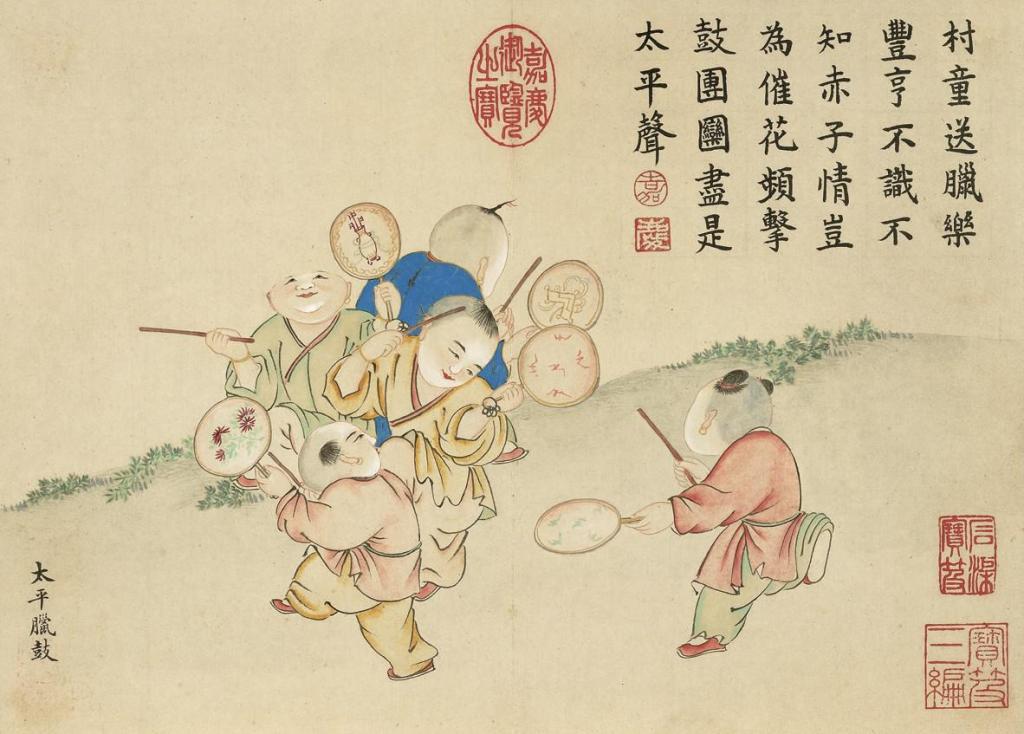 村童送臘樂
豐亨不識不
知赤子情豈
為催花頻擊
鼓團圞盡是
太平聲
嘉
慶
嘉慶
御覽
之寶
太平臘鼓
石渠
寶笈
寶笈
三編